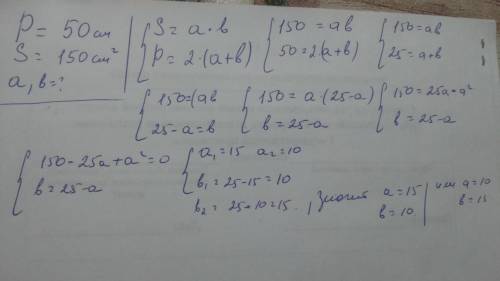 P = 50 см
S = 150 см²
a, b = ?
{ S = a · b
P = 2 · (a+b)
{ 150 = ab
50 = 2(a+b)
{ 150 = ab
25 = a+b
{ 150 = (ab
25 - a = b
{ 150 = a · (25-a)
b = 25 - a
{ 150 = 25a - a²
b = 25 - a
{ 150 - 25a + a² = 0
b = 25 - a
{ a₁ = 15 a₂ = 10
b₁ = 25 - 15 = 10
b₂ = 25 + 10 = 15. , Значит a = 15
b = 10.
или a = 10
b = 15